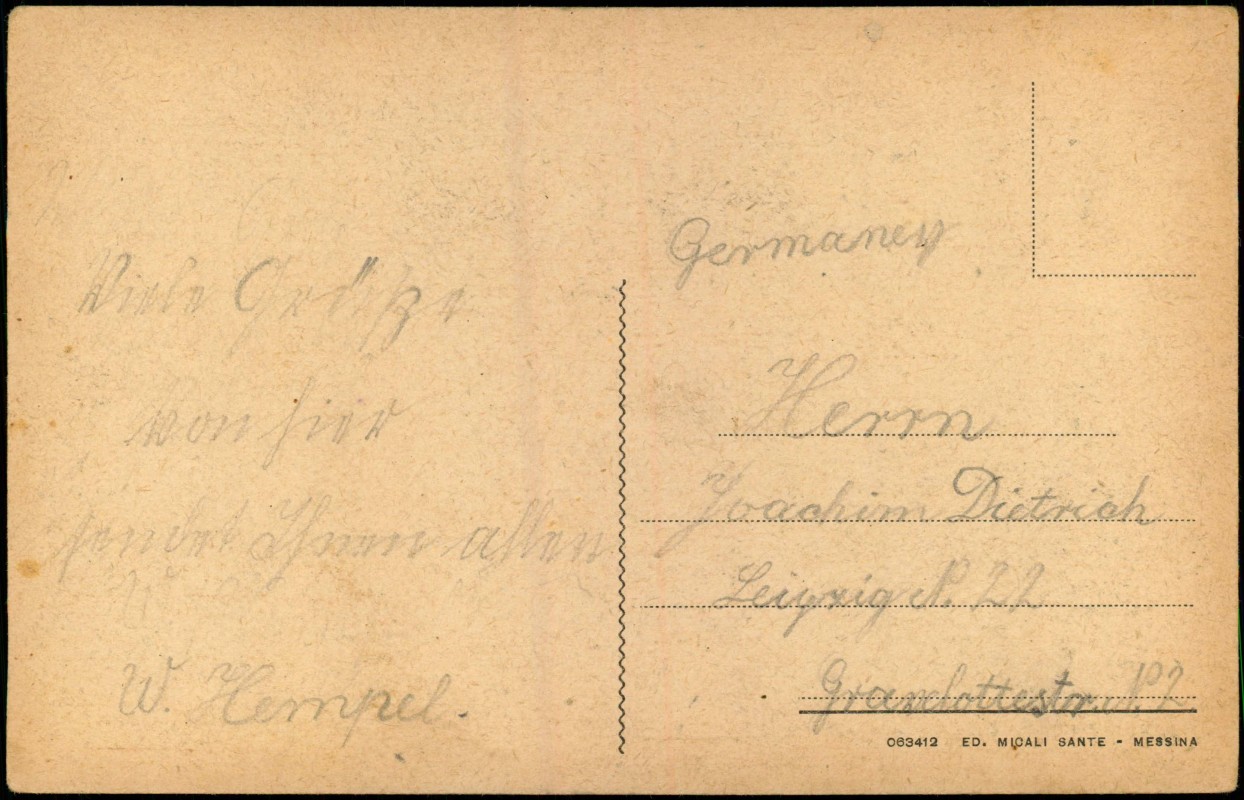 Viele Grüße
von hier
sendet Ihnen allen
W. Hempel.
Germaney
Herrn
Joachim Dietrich
Leipzig N. 22
Gravelottestr. No 2
063412 ED. MICALI SANTE - MESSINA